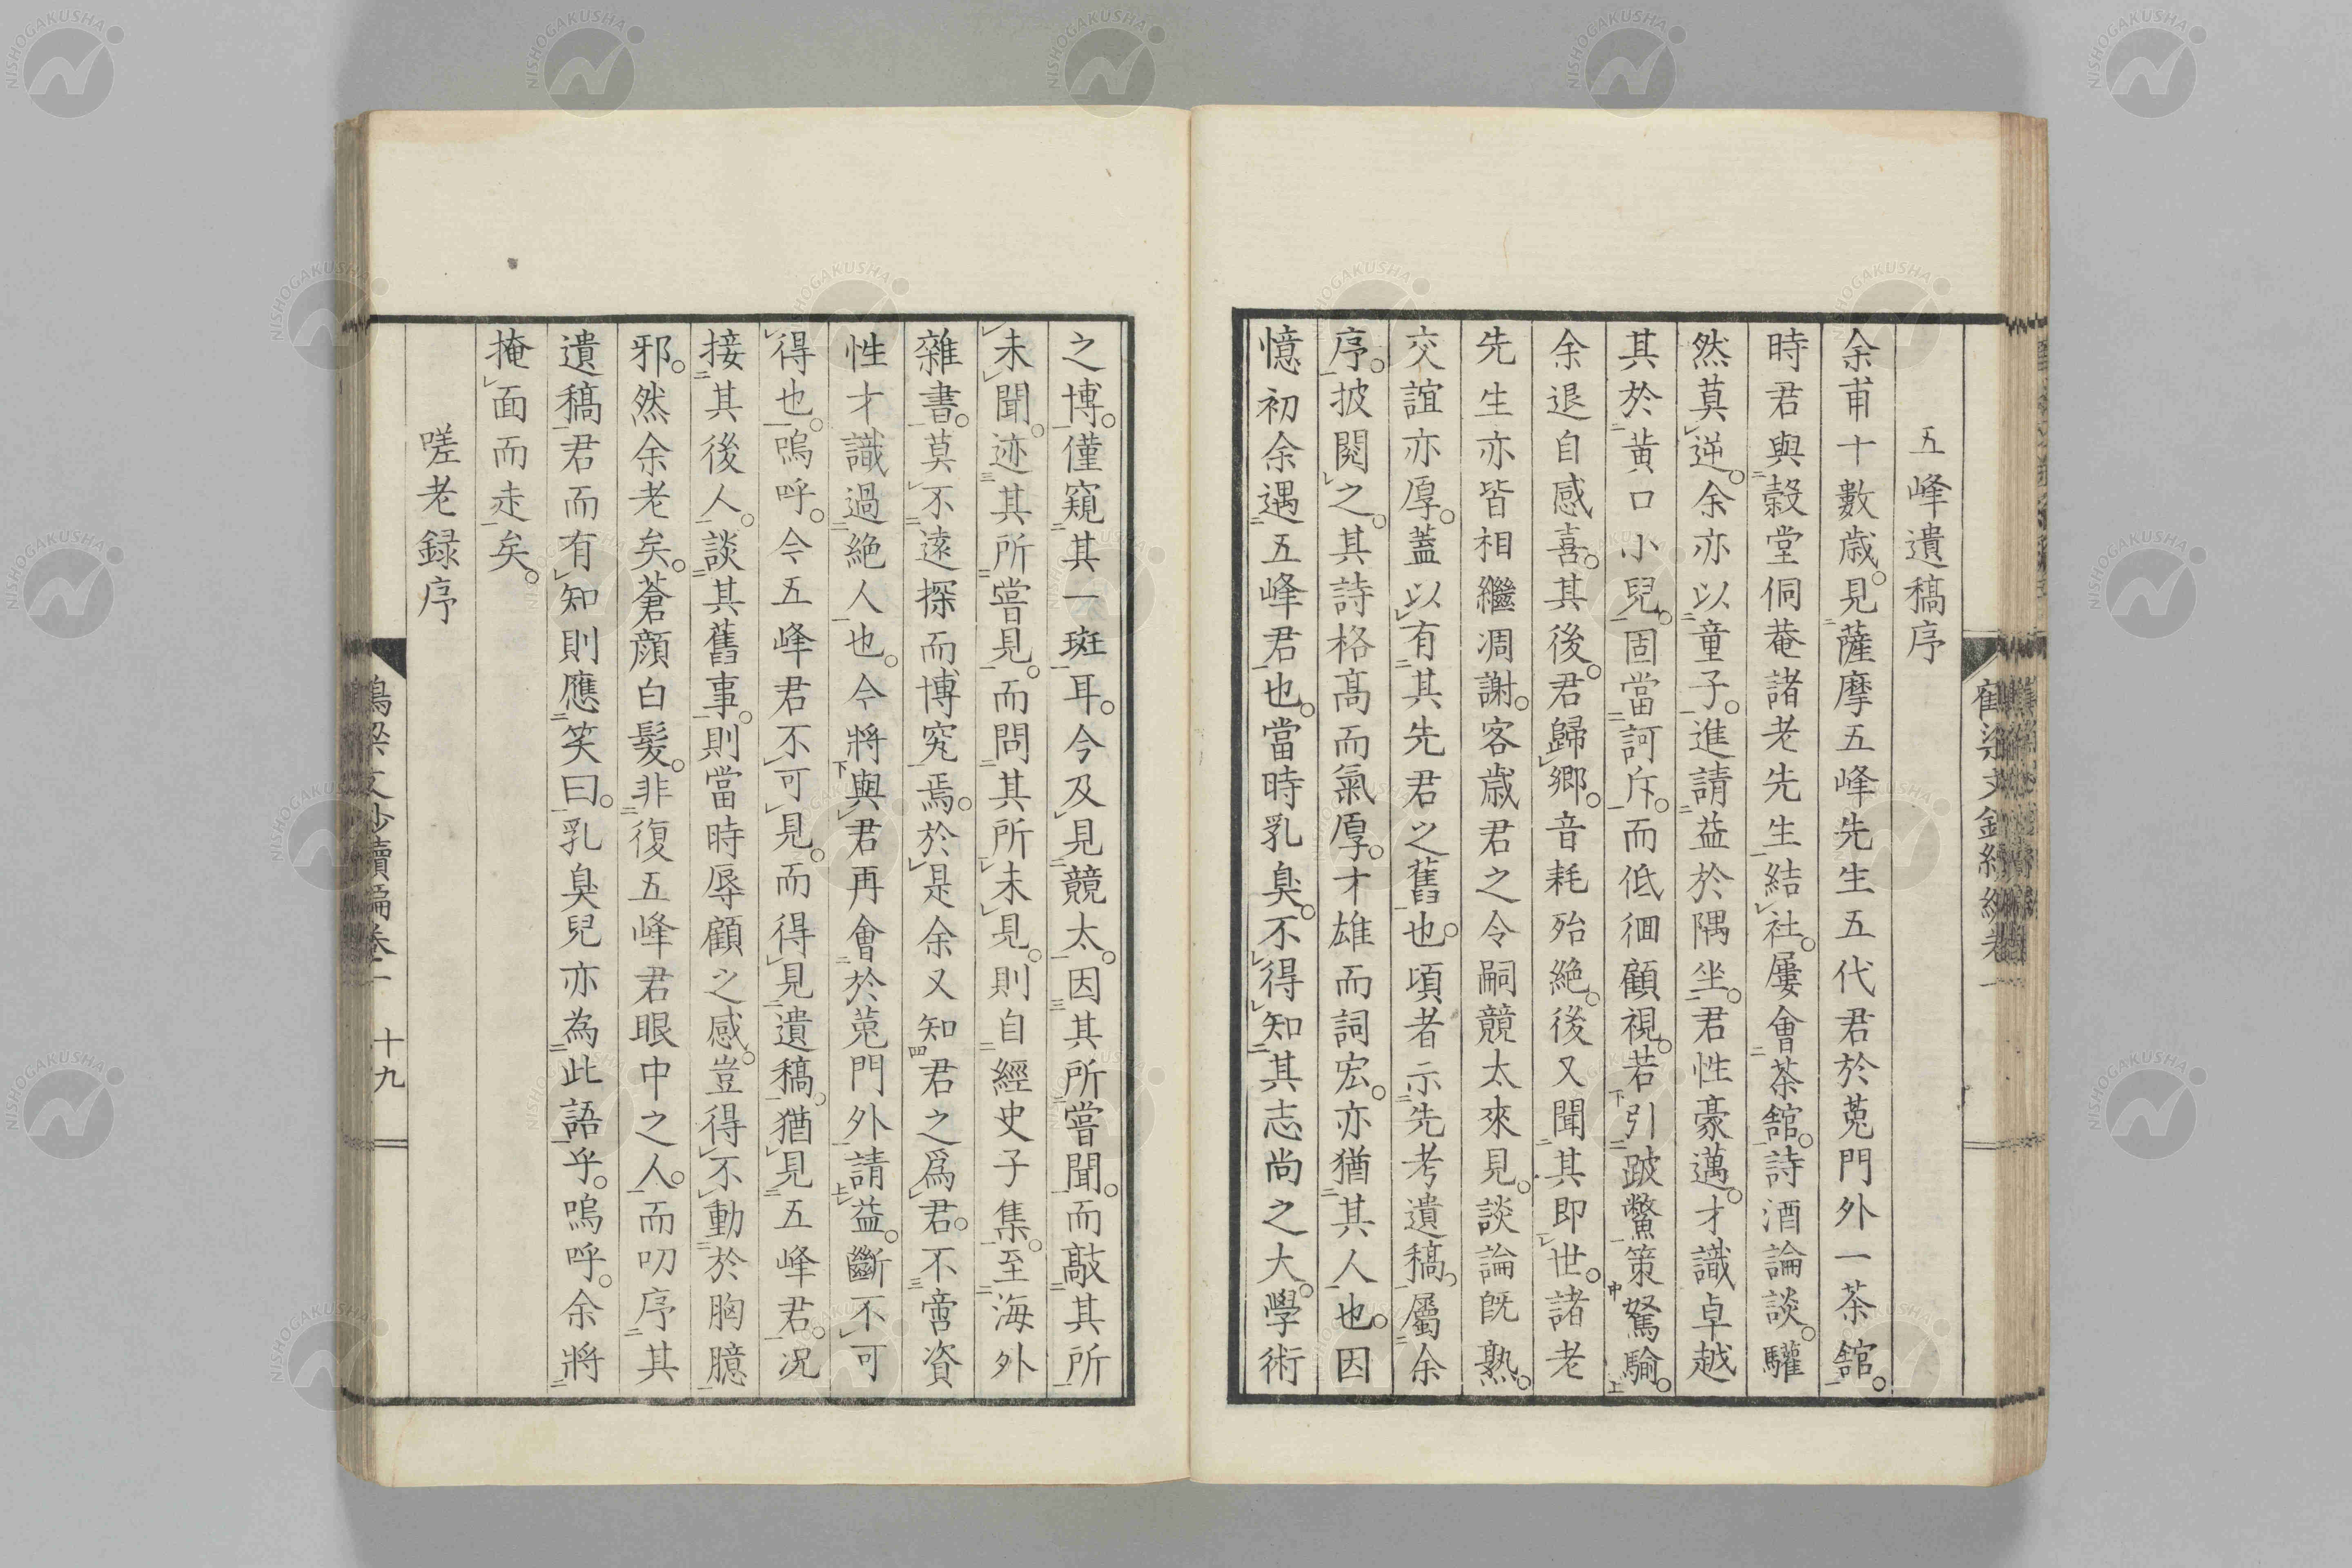 五峰遺稿序
余甫十數歳。見薩摩五峰先生五代君於菟門外一茶舘。
時君與穀堂侗菴諸老先生結社。屢會茶舘。詩酒論談。驩
然莫逆。余亦以童子。進請益於隅坐。君性豪邁。才識卓越
其於黄口小兒。固當訶斥。而低徊顧視。若引跛鱉策駑騟。
余退自感喜。其後。君歸郷。音耗殆絶。後又聞其即世。諸老
先生亦皆相繼凋謝。客歳君之令嗣競太來見。談論既熟。
交誼亦厚。蓋以有其先君之舊也。頃者示先考遺稿。屬余
序。披閲之。其詩格髙而氣厚。才雄而詞宏。亦猶其人也。因
憶初余遇五峰君也。當時乳臭。不得知其志尚之大。學術
之博。僅窺其一斑耳。今及見競太。因其所嘗聞。而敲其所
未聞。迹其所嘗見。而問其所未見。則自經史子集。至海外
雜書。莫不遠探而博究焉。於是余又知君之爲君。不啻資
性才識過絶人也。今將與君再會於菟門外請益。斷不可
得也。嗚呼。今五峰君不可見。而得見遺稿。猶見五峰君。况
接其後人。談其舊事。則當時辱顧之感。豈得不動於胸臆
邪。然余老矣。蒼顔白髪。非復五峰君眼中之人。而叨序其
遺稿。君而有知則應笑曰。乳臭兒亦為此語乎。嗚呼。余將
掩面而走矣。
嗟老録序
十九
NISHOGAKUSHA